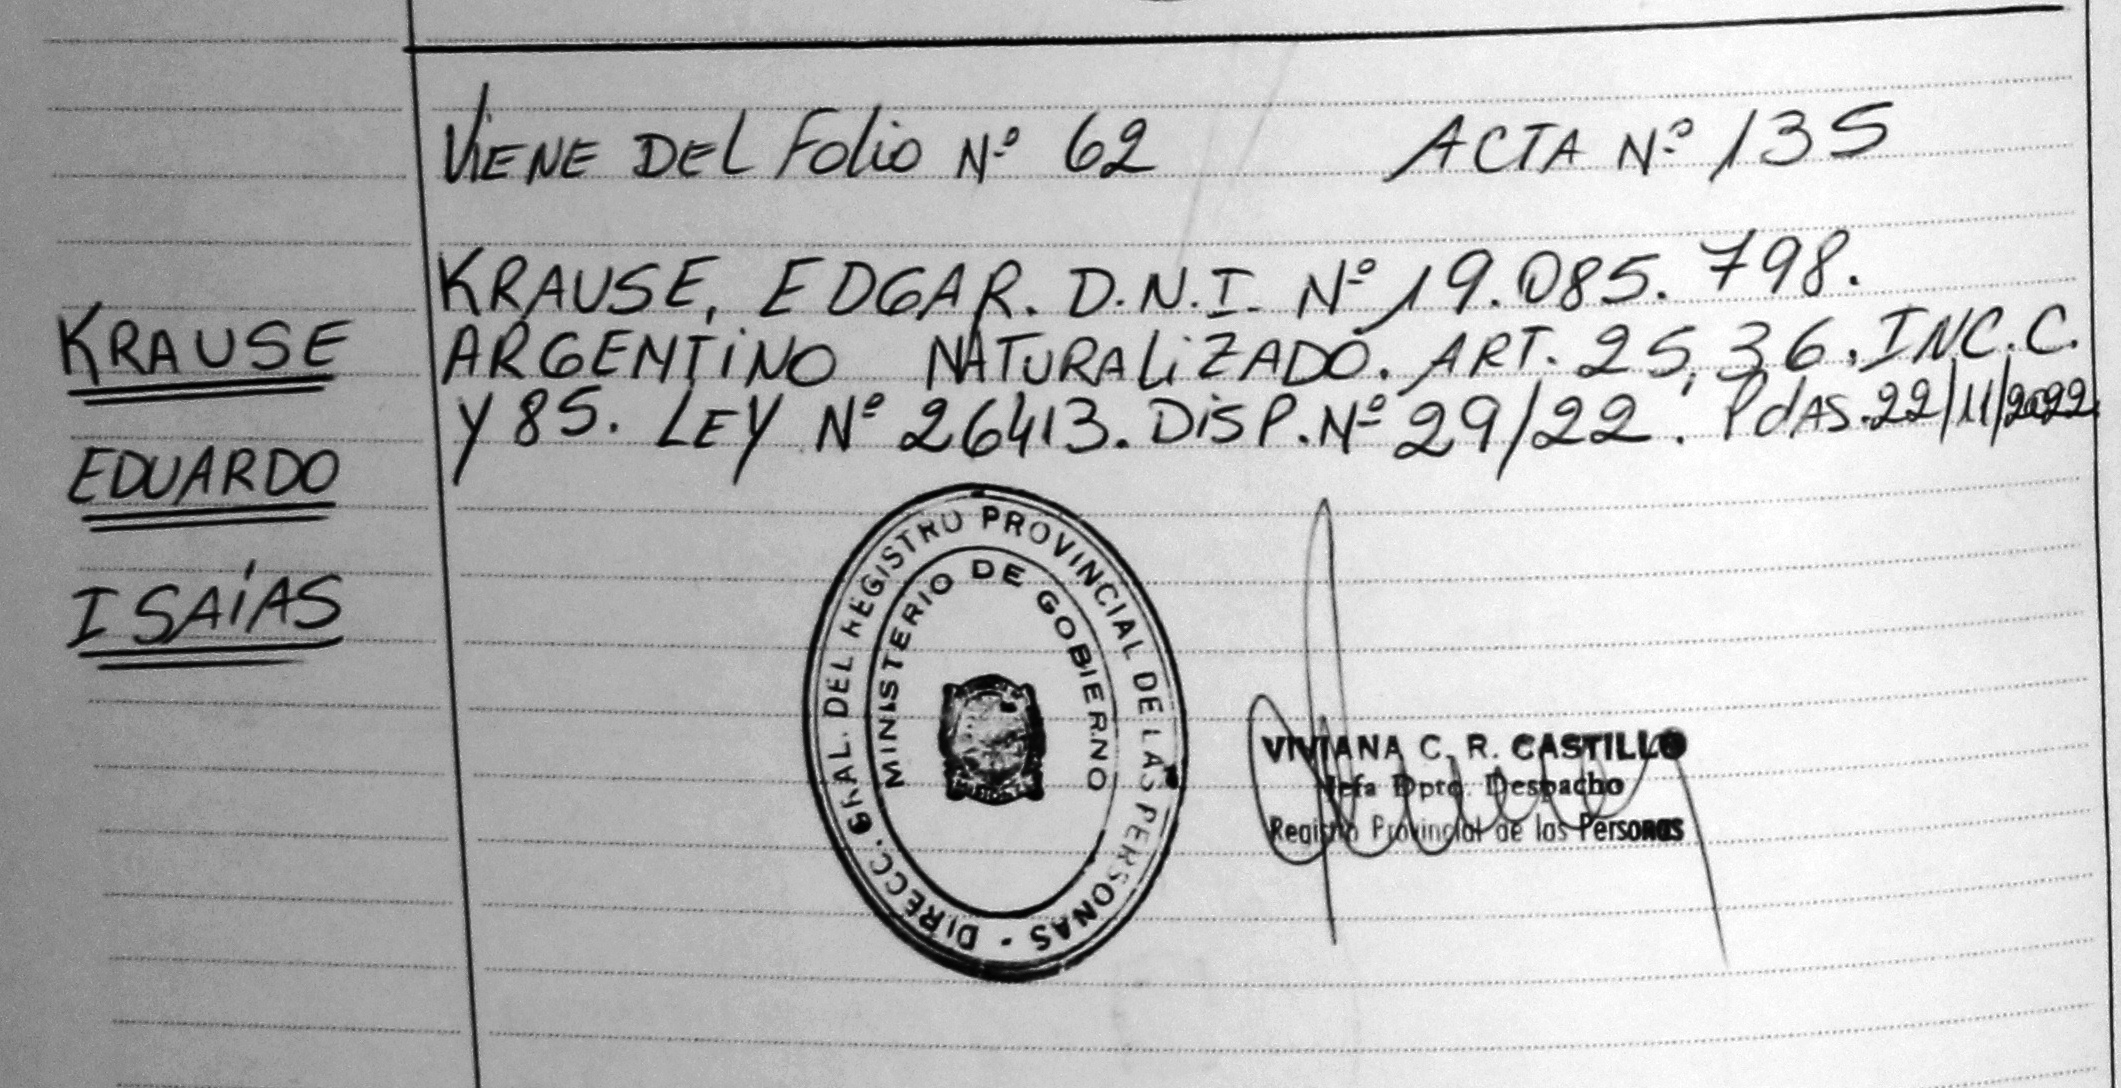 VIENE DEL FOLIO Nº 62 ACTA Nº 135
KRAUSE
EDUARDO
ISAÍAS
KRAUSE, EDGAR. D.N.I. Nº 19.085.798.
ARGENTINO NATURALIZADO. ART. 25, 36. INC. C.
Y 85. LEY Nº 26413. DISP. Nº 29/22. PdAS. 22/11/2022
DIRECC. GRAL. DEL REGISTRO PROVINCIAL DE LAS PERSONAS -
MINISTERIO DE GOBIERNO
VIVIANA C. R. CASTILLO
Jefa Dpto. Despacho
Registro Provincial de las Personas